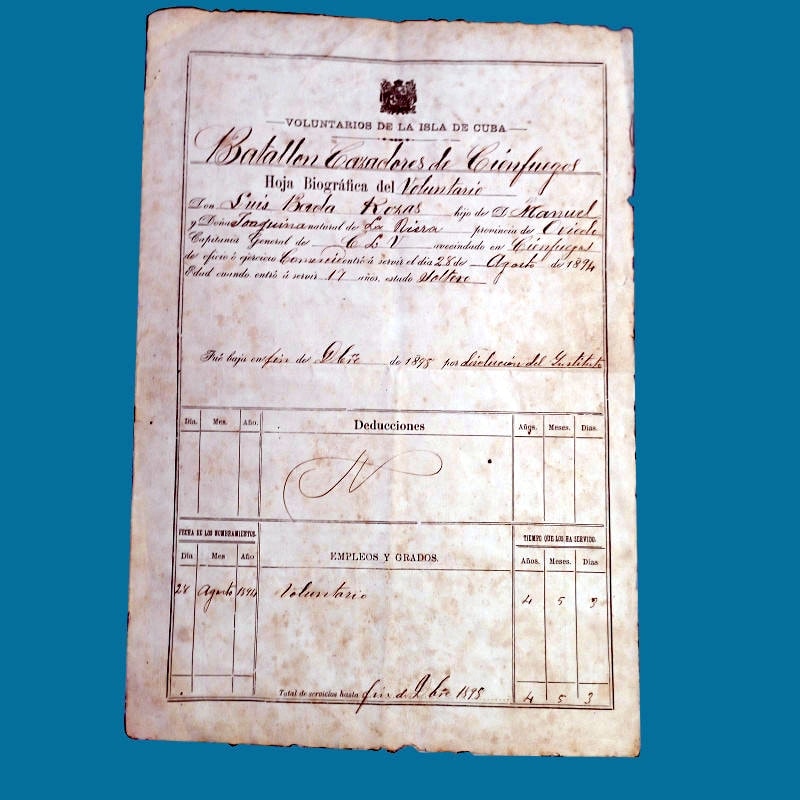 VOLUNTARIOS DE LA ISLA DE CUBA
Batallon Cazadores de Cienfuegos
Hoja Biográfica del Voluntario
Don Luis Bada Rozas hijo de D. Manuel
y Doña Joaquina natural de La Riera provincia de Oviedo
Capitanía General de C L V avecindado en Cienfuegos
de oficio ó ejercicio Comercio entró á servir el día 28 de Agosto de 1894
Edad cuando entró á servir 17 años, estado Soltero
Fué baja en fin de Dbre de 1898 por disolución del Instituto
Día. Mes. Año. Deducciones Años. Meses. Días.
N
FECHA DE LOS NOMBRAMIENTOS. TIEMPO QUE LOS HA SERVIDO.
Día Mes Año EMPLEOS Y GRADOS. Años. Meses. Días
28 Agosto 1894 Voluntario 4 5 3
Total de servicios hasta fin de Dbre 1898 4 5 3